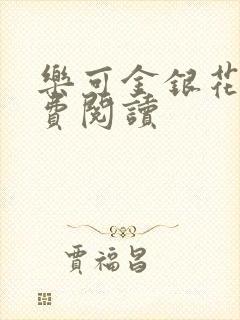 樂可金銀花
費閱讀
賈福昌